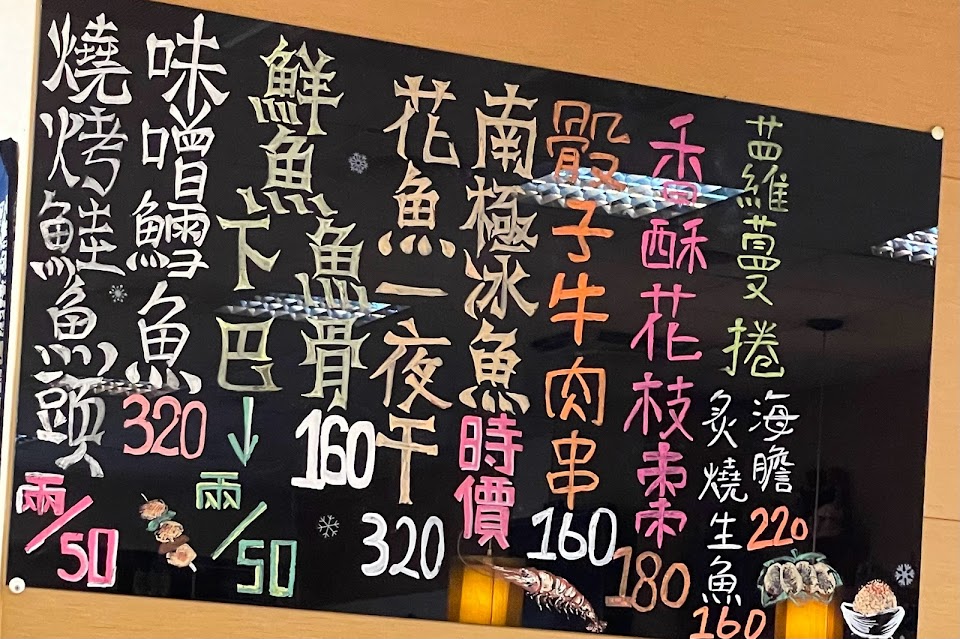 蘿蔓捲
海膽 220
炙燒生魚 160
香酥花枝棗 180
骰子牛肉串 160
南極冰魚 時價
花魚一夜干 320
鮮魚
魚骨 160
下巴↓ 兩/50
味噌鱈魚 320
燒烤鮭魚頭 兩/50